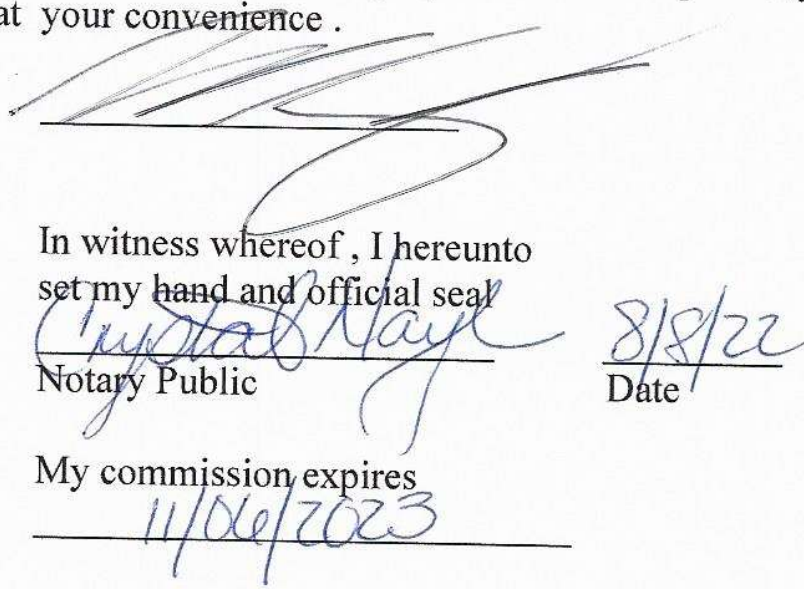 at your convenience .
In witness whereof , I hereunto
set my hand and official seal
Crystal
8/8/22
Notary Public
Date
My commission expires
11/06/2023